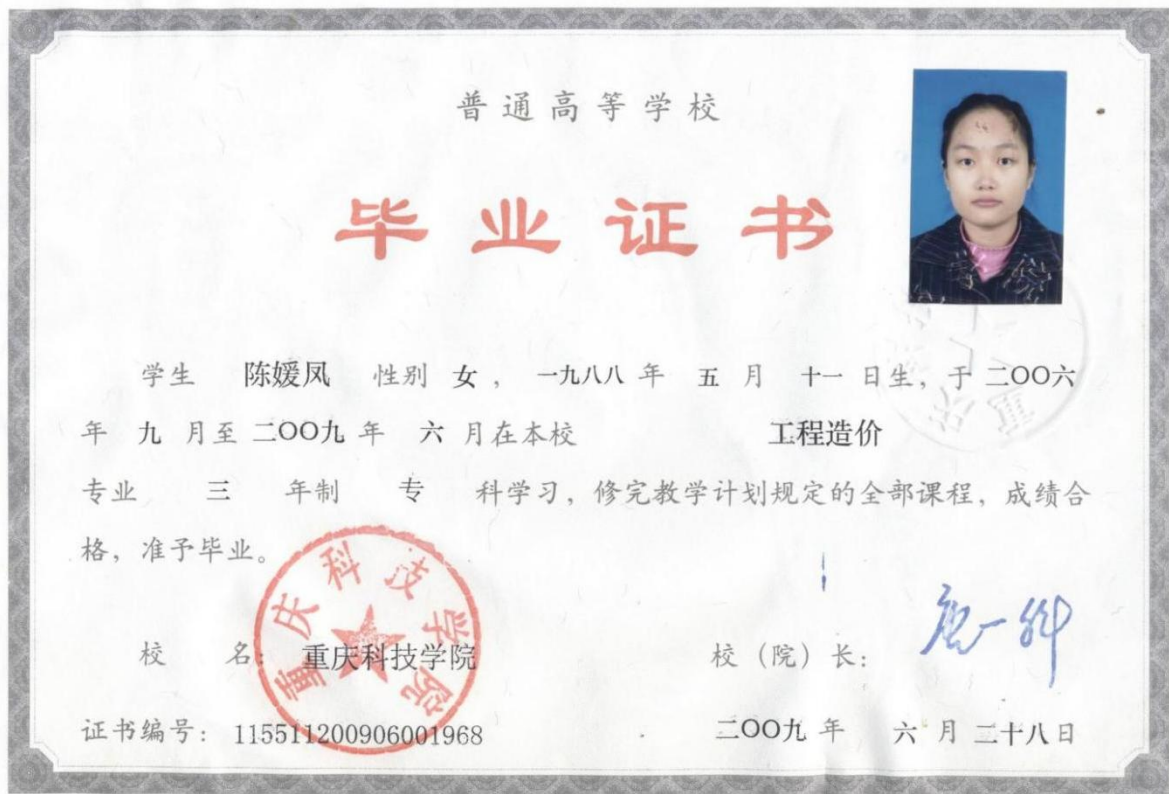 普通高等学校
毕业证书
学生 陈媛凤 性别 女 ， 一九八八 年 五 月 十一 日生，于 二OO六
年 九 月至 二OO九 年 六 月在本校 工程造价
专业 三 年制 专 科学习，修完教学计划规定的全部课程，成绩合
格，准予毕业。
校 名： 重庆科技学院
重庆科技学院
校（院）长： 唐一科
证书编号： 115511200906001968
二OO九 年 六 月 二十八 日